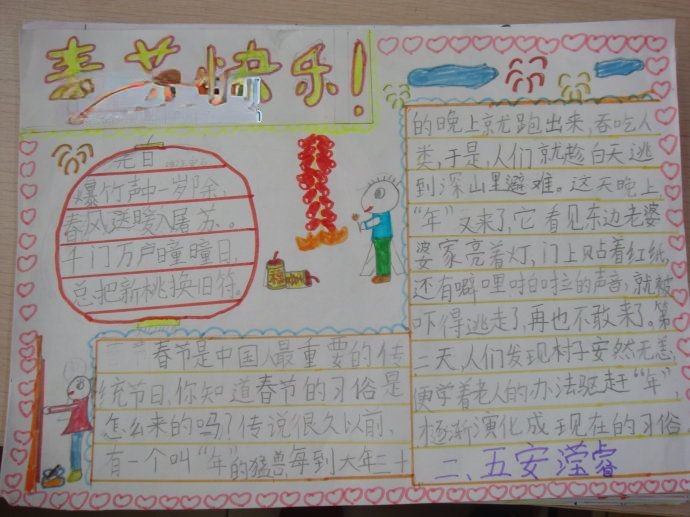 春节快乐!
元日
爆竹声中一岁除,
春风送暖入屠苏。
千门万户曈曈日,
总把新桃换旧符。
春节是中国人最重要的传
统节日,你知道春节的习俗是
怎么来的吗?传说很久以前,
有一个叫“年”的猛兽,每到大年三十
的晚上就跑出来,吞吃人
类,于是,人们就趁白天逃
到深山里避难。这天晚上
“年”又来了,它看见东边老婆
婆家亮着灯,门上贴着红纸,
还有噼哩啪啦的声音,就被
吓得逃走了,再也不敢来了。第
二天,人们发现村子安然无恙,
便学着老人的办法驱赶“年”,
逐渐演化成现在的习俗
二、五安滢睿